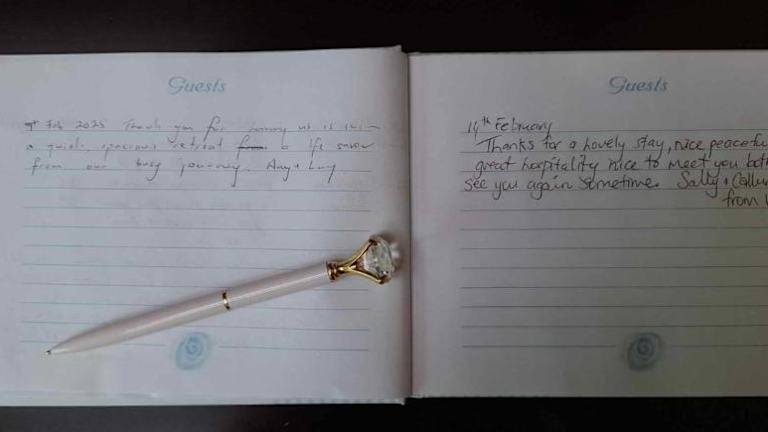 Guests
9th Feb 2025 Thank you for having us
a quiet, spacious retreat a life saver
from our busy journey. Amy + Lucy
Guests
14th February
Thanks for a lovely stay, nice peaceful
great hospitality nice to meet you both
see you again sometime. Sally + Callum
from